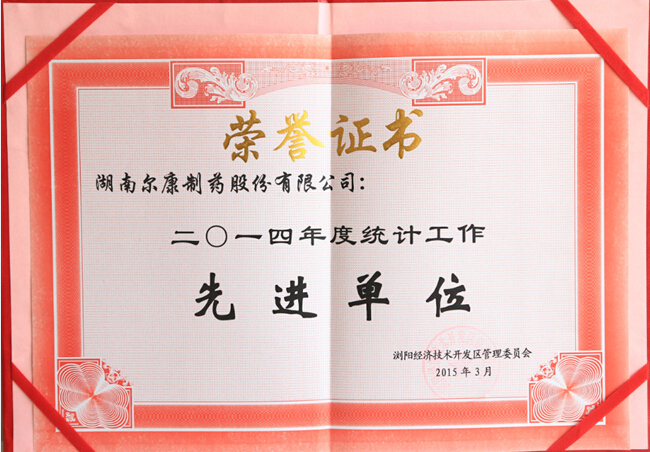 荣誉证书
湖南尔康制药股份有限公司：
二〇一四年度统计工作
先进单位
浏阳经济技术开发区管理委员会
2015年3月